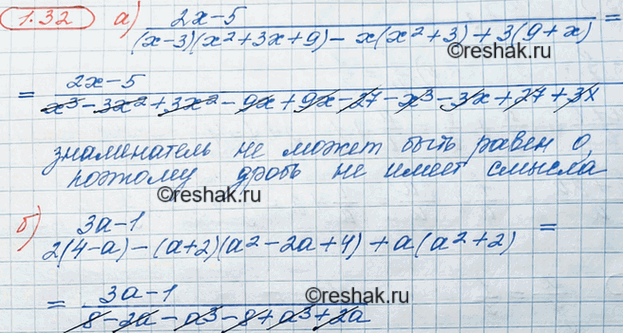 1.32 а) 2x-5
(x-3)(x²+3x+9)-x(x²+3)+3(9+x) =
©reshak.ru
= 2x-5
x³-3x²+3x²-9x+9x-27-x³-3x+27+3x
знаменатель не может быть равен 0,
поэтому дробь не имеет смысла
©reshak.ru
б) 3a-1
2(4-a)-(a+2)(a²-2a+4)+a(a²+2) =
= 3a-1
8-2a-a³-8+a³+2a
©reshak.ru